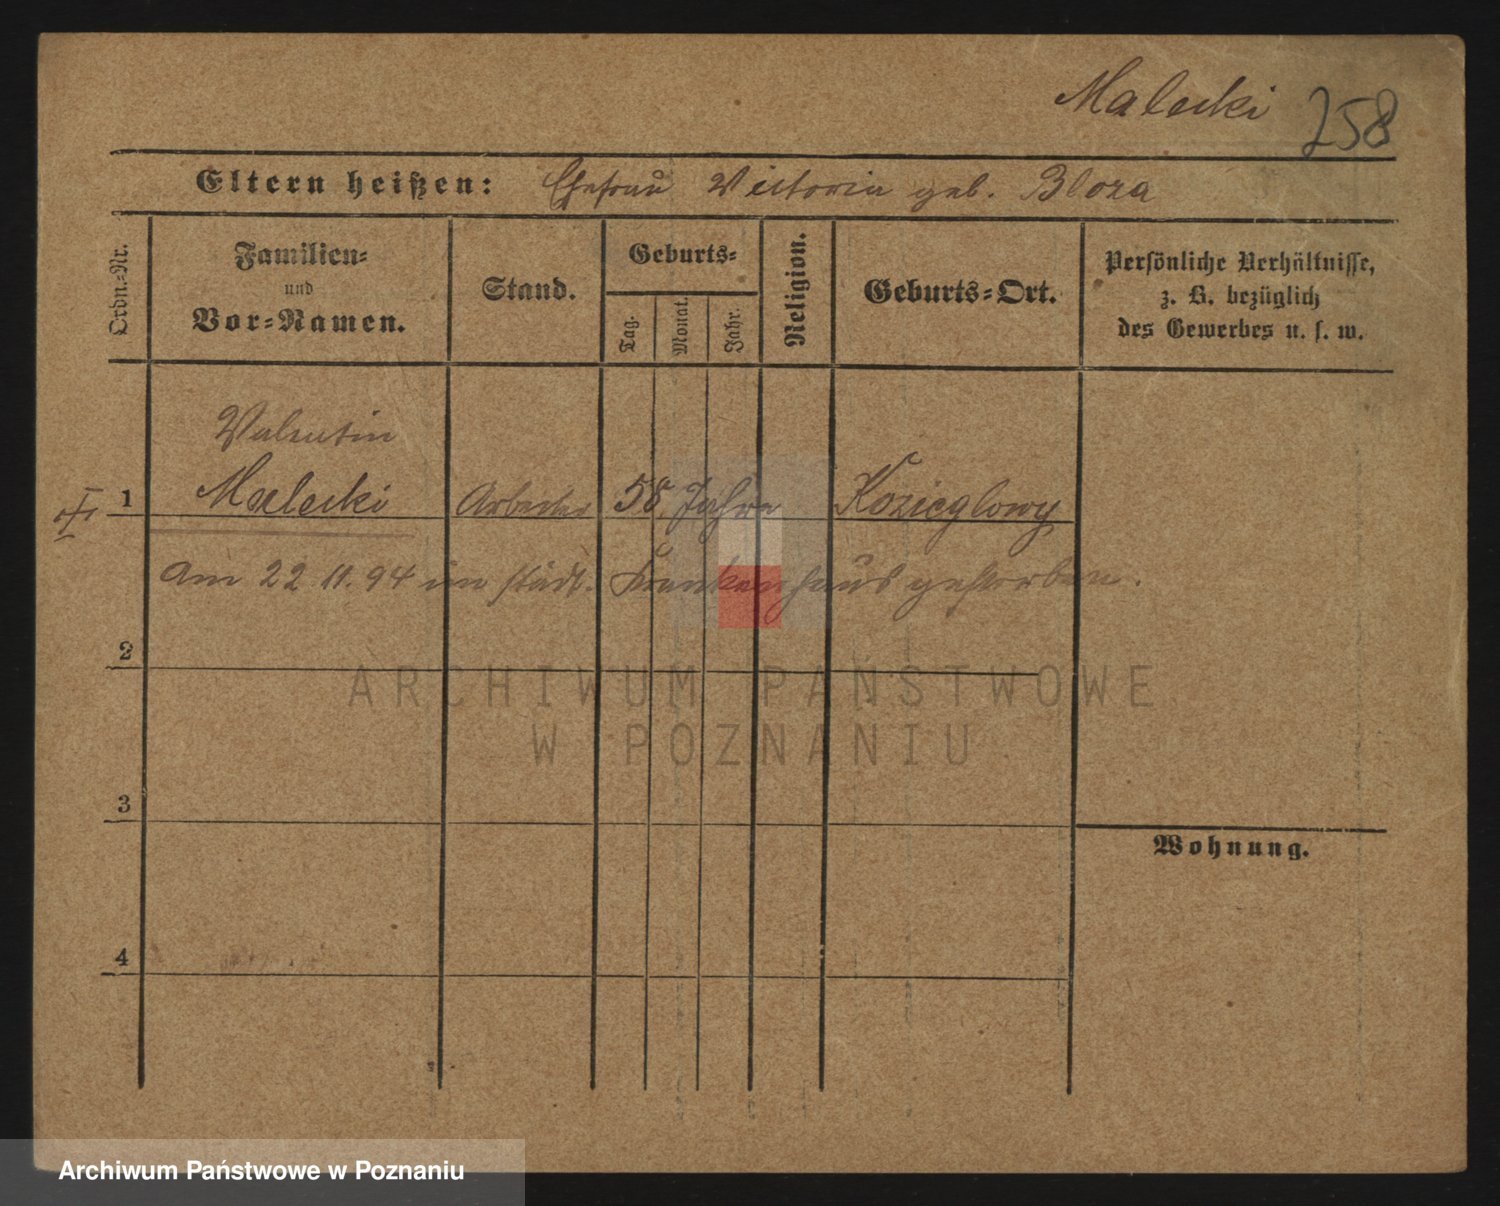 Malecki 258
Eltern heißen: Ehefrau Victoria geb. Bloza
Ordn.-Nr.
Familien-
und
Vor-Namen.
Stand.
Geburts-
Tag.
Monat.
Jahr.
Religion.
Geburts-Ort.
Persönliche Verhältnisse,
z. B. bezüglich
des Gewerbes u. s. w.
Valentin
1 Malecki Arbeiter 58 Jahre Kozieglowy
Am 22 11. 94 im städt. Krankenhaus gestorben.
2
ARCHIWUM PAŃSTWOWE
W POZNANIU
3
Wohnung.
4
Archiwum Państwowe w Poznaniu